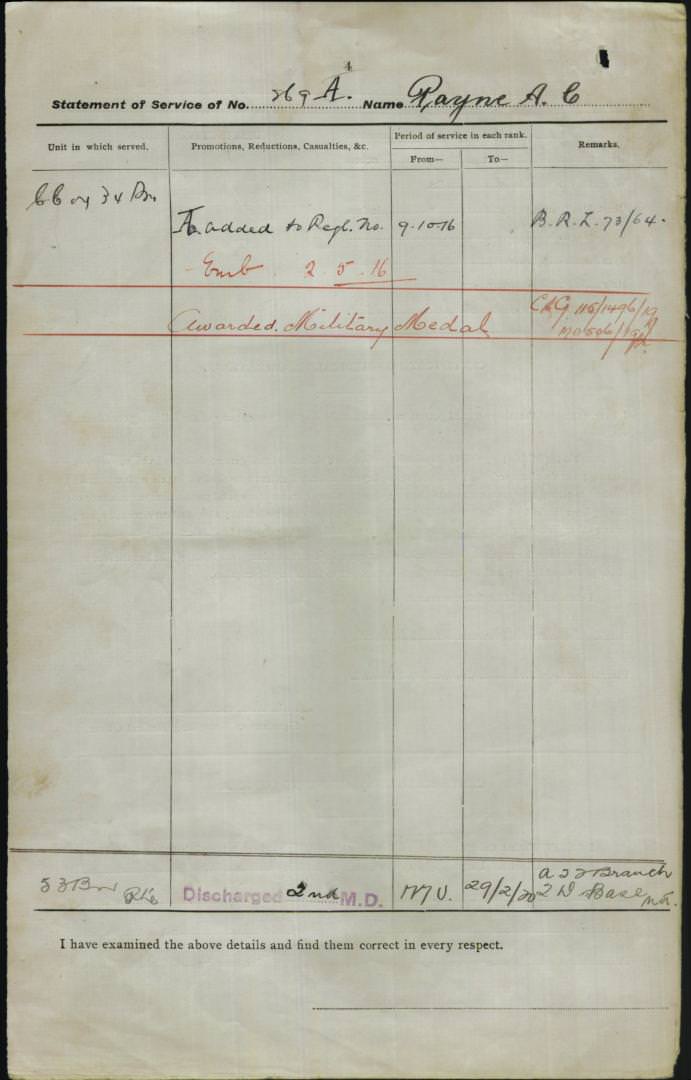 4
Statement of Service of No. 269 A. Name Rayne A. C
Unit in which served.
Promotions, Reductions, Casualties, &c.
Period of service in each rank.
From—
To—
Remarks.
34 Bn.
A. added to Regl. No. 9-10-16 B.R.L. 73/64.
Emb. 2.5.16
Awarded Military Medal
53 Bn Pte Discharged 2nd M.D. 29/2/20 Branch
2 D Base
I have examined the above details and find them correct in every respect.